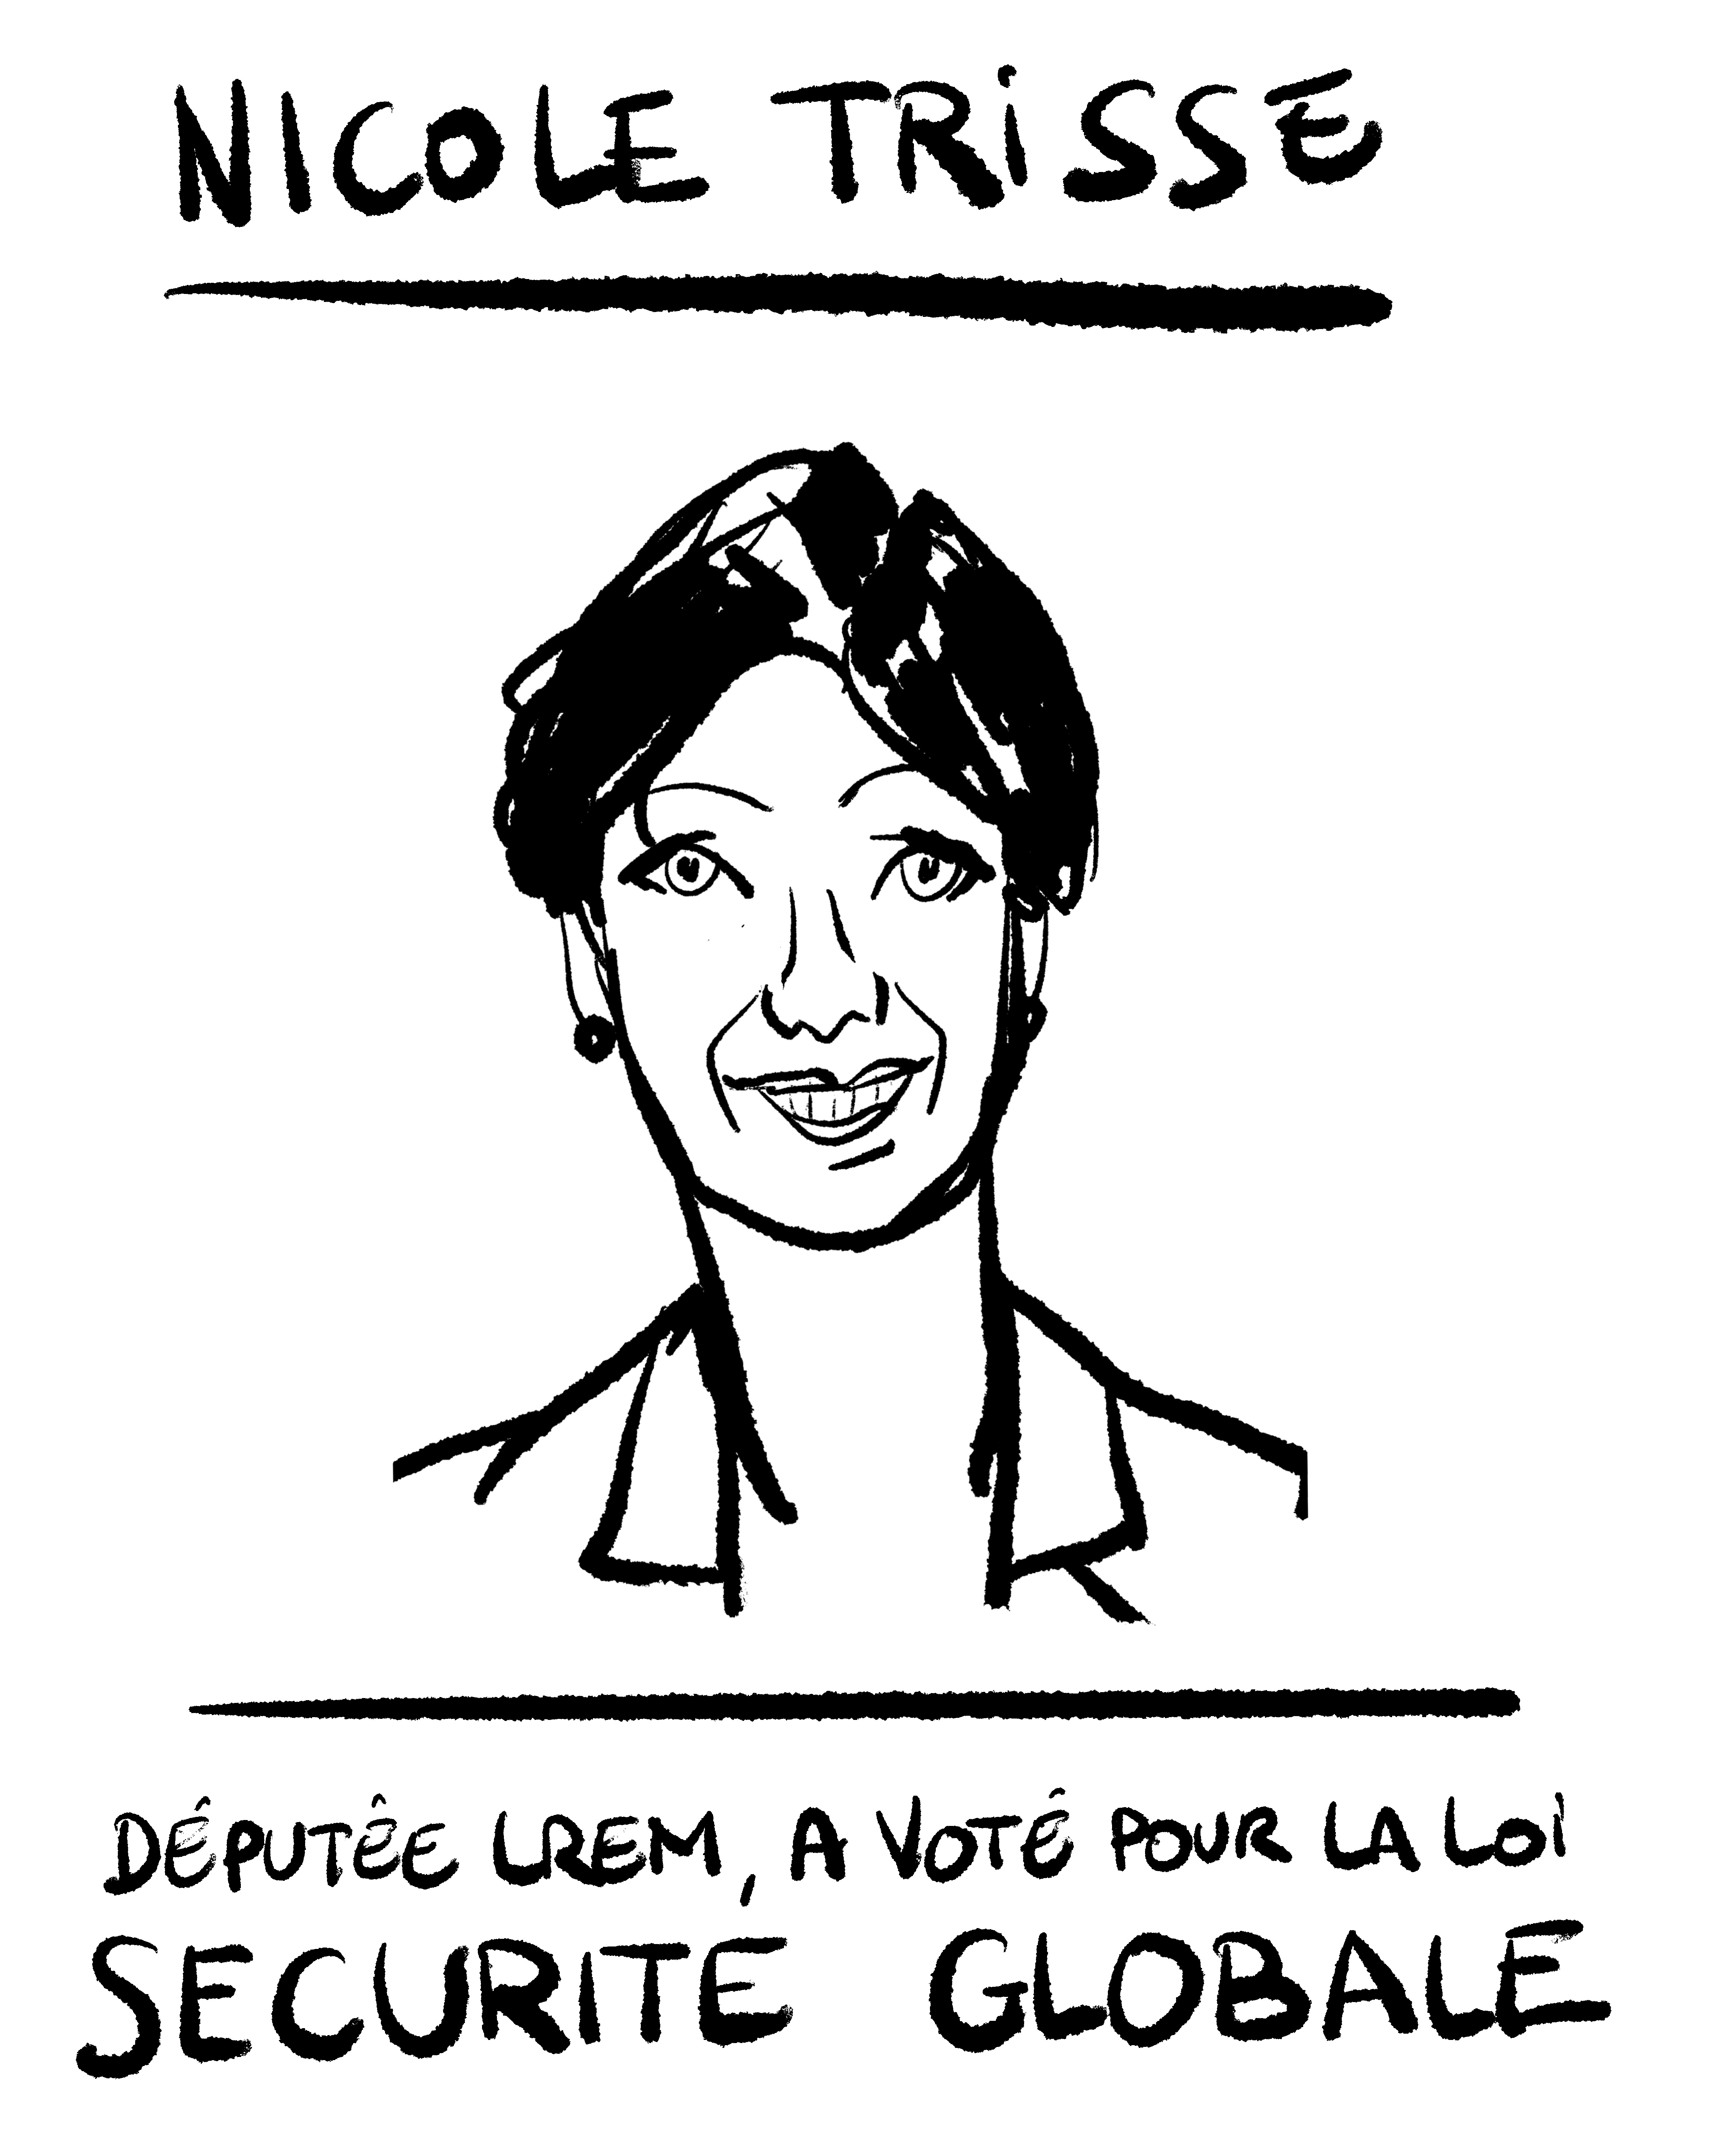 NICOLE TRiSSE
DÉPUTÉE LREM, A VOTÉ POUR LA LOi
SECURITÉ GLOBALE